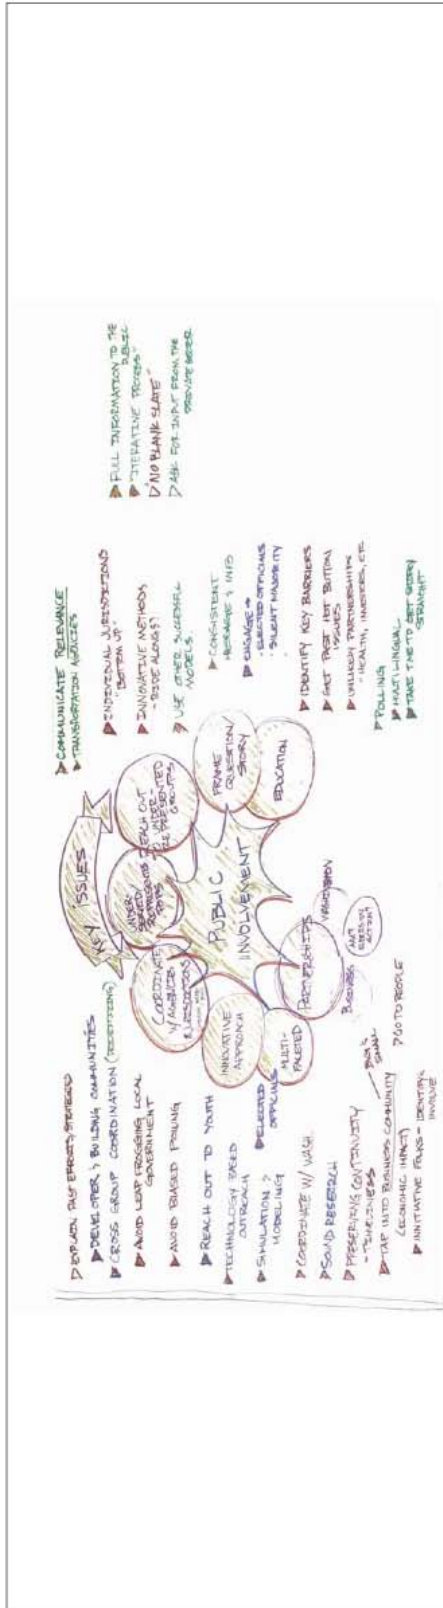 KEY ISSUES
PUBLIC
INVOLVEMENT
COORDINATE
W/ AGENCIES
JURISDICTIONS
UNDER-
REACH OUT
TO UNDER-
REPRESENTED
GROUPS
FRAME
QUESTION/
STORY
EDUCATION
INNOVATIVE
APPROACH
MULTI-
FACETED
PARTNERSHIPS
BUSINESS
EXPLAIN PAST EFFORTS/STRATEGIES
DEVELOPER & BUILDING COMMUNITIES
CROSS GROUP COORDINATION
AVOID LEAP FROGGING LOCAL
GOVERNMENT
AVOID BIASED POLLING
REACH OUT TO YOUTH
TECHNOLOGY BASED
OUTREACH
SIMULATION &
MODELING
ELECTED
OFFICIALS
COORDINATE W/ WASH.
SOUND RESEARCH
PRESERVING CONTINUITY
- TIMELINESS
TAP INTO BUSINESS COMMUNITY
(ECONOMIC IMPACT)
GO TO PEOPLE
INITIATIVE FOLKS - IDENTIFY &
INVOLVE
COMMUNICATE RELEVANCE
TRANSPORTATION AGENCIES
INDIVIDUAL JURISDICTIONS
"BOTTOM UP"
INNOVATIVE METHODS
- RIDE ALONGS?
USE OTHER SUCCESSFUL
MODELS
CONSISTENT
MESSAGE & INFO
ENGAGE
- ELECTED OFFICIALS
- SILENT MAJORITY
IDENTIFY KEY BARRIERS
GET PAST HOT BUTTON
ISSUES
UNLIKELY PARTNERSHIPS
- HEALTH, INVESTORS, ETC
POLLING
MULTI LINGUAL
TAKE TIME TO GET STORY
STRAIGHT
FULL INFORMATION TO THE
PUBLIC
"ITERATIVE PROCESS"
"NO BLANK SLATE"
ASK FOR INPUT FROM THE
PRIVATE SECTOR